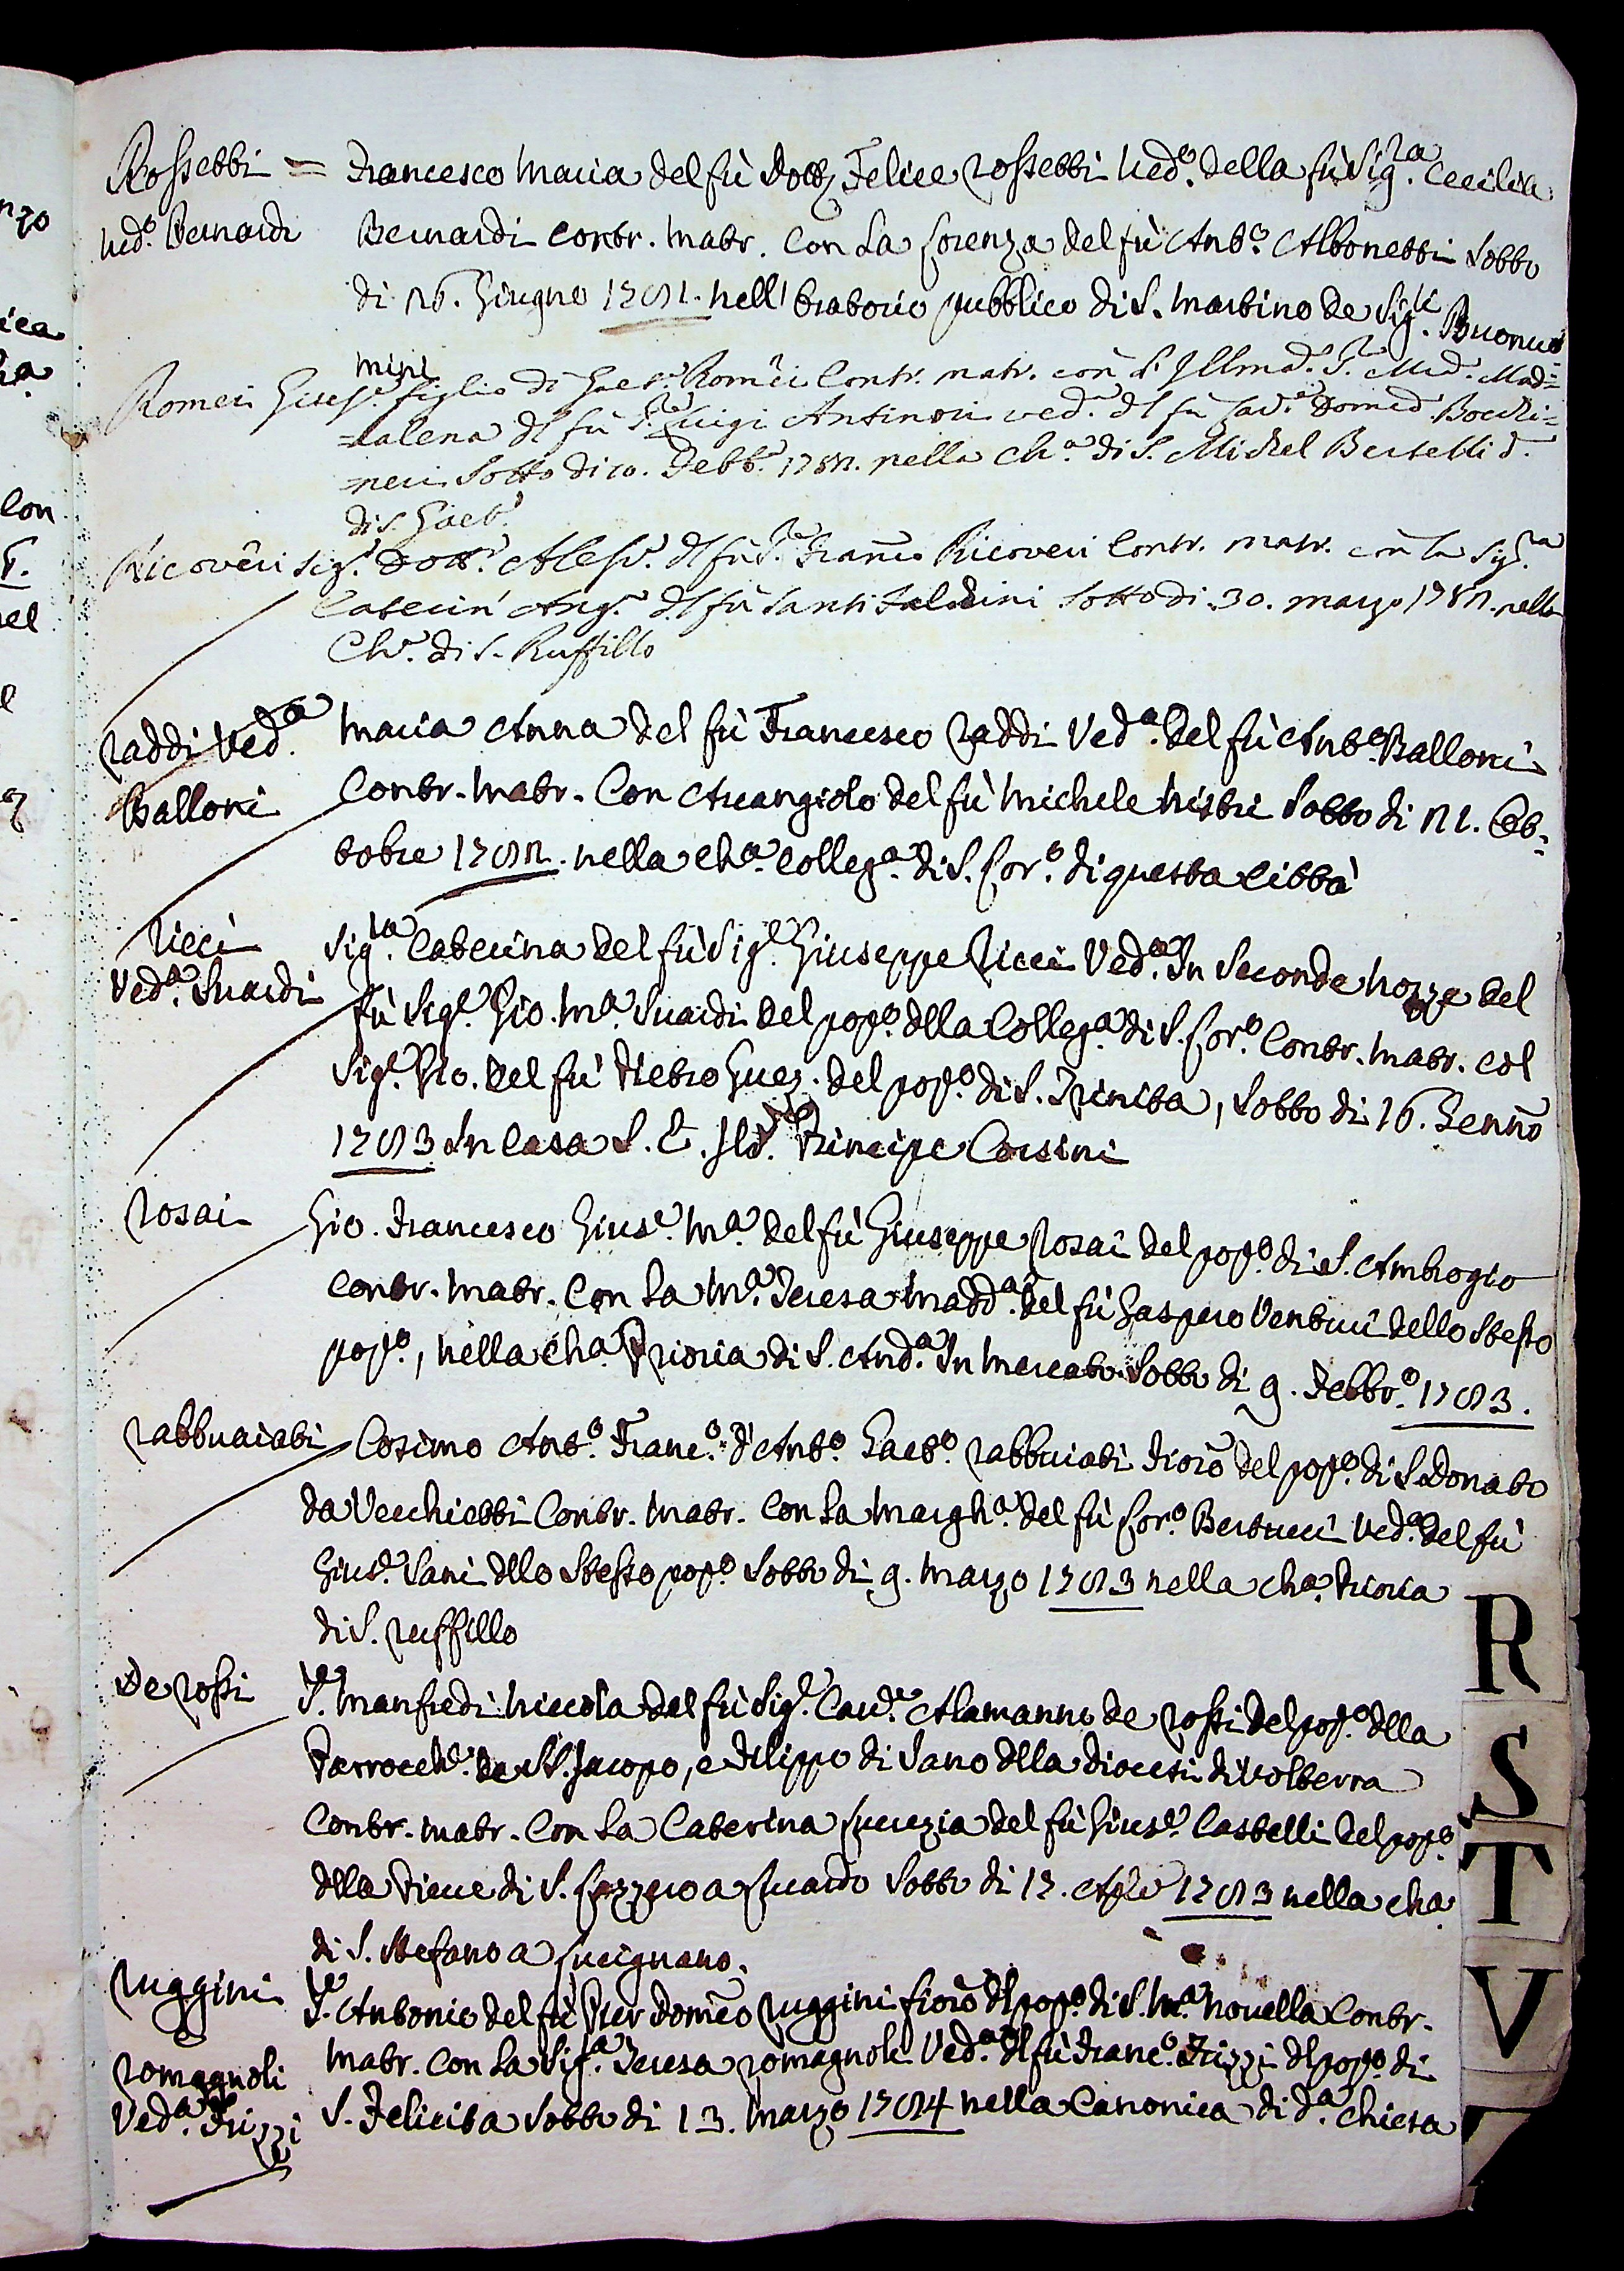 Rossetti = Francesco Maria del fù Dott. Felice Rossetti Ved.o della fù Sig.ra Cecilia
Ved.o Bernardi Bernardi Contr. Matr. Con La Lorenza del fù Ant.o Albonetti Sotto
di 26. Giugno 1781. nell'Oratorio pubblico di S. Martino de Sig.li Buonuo
mini
Romeri Gius.e figlio di Gaet.o Romèri Contr. matr. con l'Illma. S.ra Mad=
=dalena dl fu S.re Luigi Antinori ved.a dl fù Cav.e Domco. Bocchi=
=neri Sotto di 10. Febb.o 1782. nella Ch.a di S. Michel Bertelli d.
di S. Gaet.o
Ricovèri Sig.e Dott.e Aless.o dl fù S.re Franco Ricoveri Contr. matr. con la Sig.ra
Caterin' Ang.a dl fù Santi Saldini Sotto di 30. marzo 1782. nella
Ch.a di S. Ruffillo
Raddi Ved.a Maria Anna del fù Francesco Raddi Ved.a del fù Ant.o Balloni
Balloni Contr. Matr. Con Arcangiolo del fù Michele Nistri Sotto di 21. Ot=
tobre 1782. nella Ch.a Colleg.a di S. Lor.o di questa Città
Ricci Sig.ra Caterina del fù Sig.e Giuseppe Ricci Ved.a In Seconde Nozze del
Ved.a Suardi fù Sig.e Gio. M.a Suardi del pop.o dlla Colleg.a di S. Lor.o Contr. Matr. col
Sig.e Gio. del fù Pietro Guez. del pop.o di S. Trinita, Sotto di 16. Genno
1783 In Casa S. E. Il Sig.re Principe Corsini
Rosai Gio. Francesco Gius.e M.a del fù Giuseppe Rosai del pop.o di S. Ambrogio
Contr. Matr. Con La M.a Teresa Madd.a del fù Gaspero Venturi dello Stesso
pop.o, nella Ch.a Prioria di S. And.a In Mercato Sotto di 9. Febbr.o 1783.
Rabbuiati Cosimo Ant.o Franc.o d'Ant.o Gaet.o Rabbuiati Fioro del pop.o di S. Donato
da Vecchietti Contr. Matr. Con La Margh.a del fù Lor.o Bertucci Ved.a del fù
Gius.e Sani dllo Stesso pop.o Sotto di 9. Marzo 1783 nella Ch.a Prioria
di S. Ruffillo
De Rossi S.re Manfredi Niccola del fù Sig.e Cav.e Alamanno de Rossi del pop.o dlla
Parroech.a de SS. Jacopo, e Filippo di Sano dlla Diocesi di Volterra
Contr. Matr. Con La Caterina Lucrezia del fù Gius.e Castelli del pop.o
dlla Pieve di S. Lazzero a Lucardo Sotto di 17. Aple 1783 nella Cha
di S. Stefano a Lucignano.
Ruggini S.re Antonio del fù Pier Domco Ruggini fioro dl pop.o di S. M.a Novella Contr.
e Romagnoli Matr. Con La Sig.a Teresa Romagnoli Ved.a dl fù Franc.o Frizzi dl pop.o di
Ved.a Frizzi S. Felicita Sotto di 13. Marzo 1784 nella Canonica di d.a Chiesa
R
S
T
V